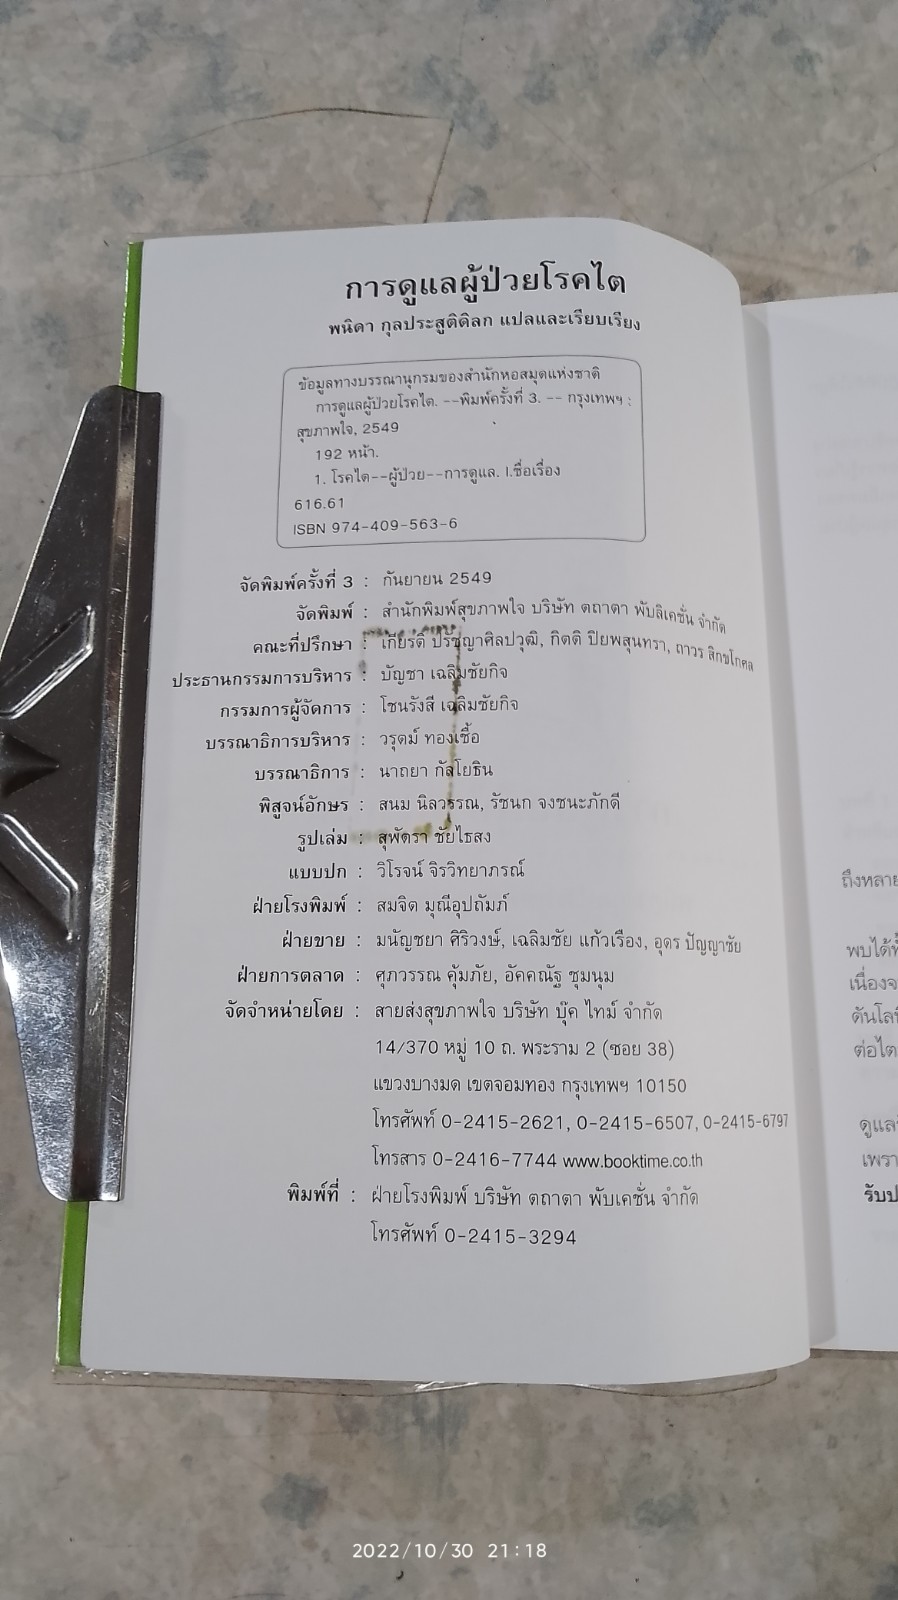 การดูแลผู้ป่วยโรคไต
พนิดา กุลประสูติดิลก แปลและเรียบเรียง
ข้อมูลทางบรรณานุกรมของสำนักหอสมุดแห่งชาติ
การดูแลผู้ป่วยโรคไต. --พิมพ์ครั้งที่ 3. -- กรุงเทพฯ :
สุขภาพใจ, 2549
192 หน้า.
1. โรคไต--ผู้ป่วย--การดูแล. I.ชื่อเรื่อง
616.61
ISBN 974-409-563-6
จัดพิมพ์ครั้งที่ 3 : กันยายน 2549
จัดพิมพ์ : สำนักพิมพ์สุขภาพใจ บริษัท ตถาตา พับลิเคชั่น จำกัด
คณะที่ปรึกษา : เกียรติ ปรัชญาศิลปวุฒิ, กิตติ ปิยพสุนทรา, ถาวร สิกขโกศล
ประธานกรรมการบริหาร : บัญชา เฉลิมชัยกิจ
กรรมการผู้จัดการ : โชนรังสี เฉลิมชัยกิจ
บรรณาธิการบริหาร : วรุตม์ ทองเชื้อ
บรรณาธิการ : นาถยา กัลโยธิน
พิสูจน์อักษร : สนม นิลวรรณ, รัชนก จงชนะภักดี
รูปเล่ม : สุพัตรา ชัยไธสง
แบบปก : วิโรจน์ จิรวิทยาภรณ์
ฝ่ายโรงพิมพ์ : สมจิต มุณีอุปถัมภ์
ฝ่ายขาย : มนัญชยา ศิริวงษ์, เฉลิมชัย แก้วเรือง, อุดร ปัญญาชัย
ฝ่ายการตลาด : ศุภวรรณ คุ้มภัย, อัคคณัฐ ชุมนุม
จัดจำหน่ายโดย : สายส่งสุขภาพใจ บริษัท บุ๊ค ไทม์ จำกัด
14/370 หมู่ 10 ถ. พระราม 2 (ซอย 38)
แขวงบางมด เขตจอมทอง กรุงเทพฯ 10150
โทรศัพท์ 0-2415-2621, 0-2415-6507, 0-2415-6797
โทรสาร 0-2416-7744 www.booktime.co.th
พิมพ์ที่ : ฝ่ายโรงพิมพ์ บริษัท ตถาตา พับเคชั่น จำกัด
โทรศัพท์ 0-2415-3294
ถึงหลาย
พบได้ทั้
เนื่องจ
ดันโลหิ
ต่อไต
ดูแล
เพรา
รับป
2022/10/30 21:18